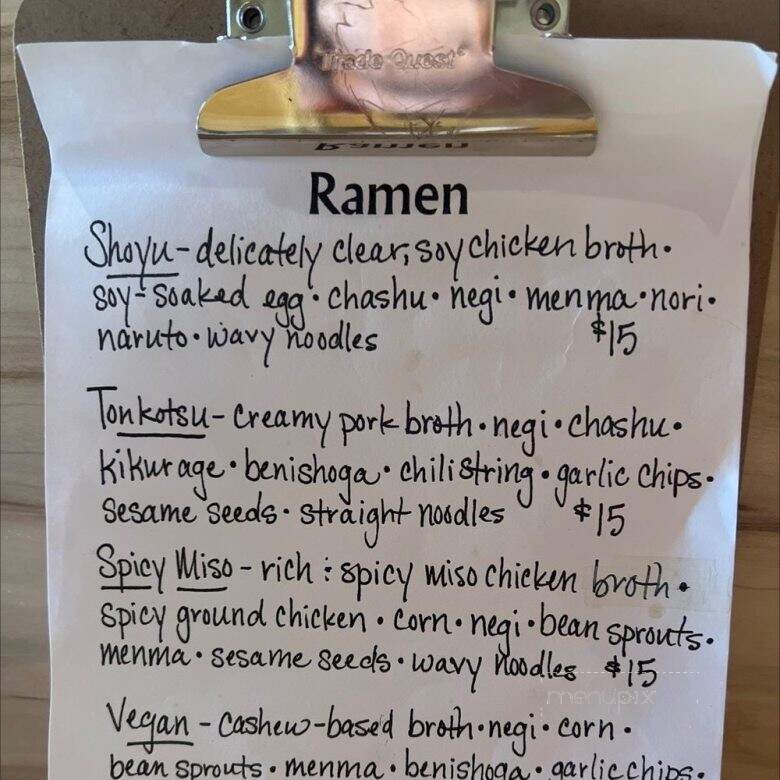 Trade Quest
Ramen
Shoyu - delicately clear, soy chicken broth •
soy-soaked egg • chashu • negi • menma • nori •
naruto • wavy noodles $15
Tonkotsu - creamy pork broth • negi • chashu •
kikurage • benishoga • chili string • garlic chips •
sesame seeds • straight noodles $15
Spicy Miso - rich : spicy miso chicken broth •
spicy ground chicken • corn • negi • bean sprouts •
menma • sesame seeds • wavy noodles $15
menupix
Vegan - cashew-based broth • negi • corn •
bean sprouts • menma • benishoga • garlic chips •